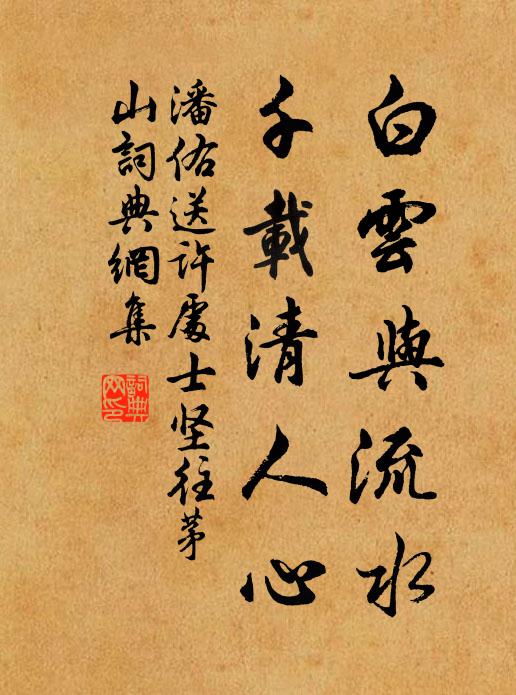 白雲與流水
千載清人心
潘佑送許處士坚往茅
山詞典網集
詞典網印